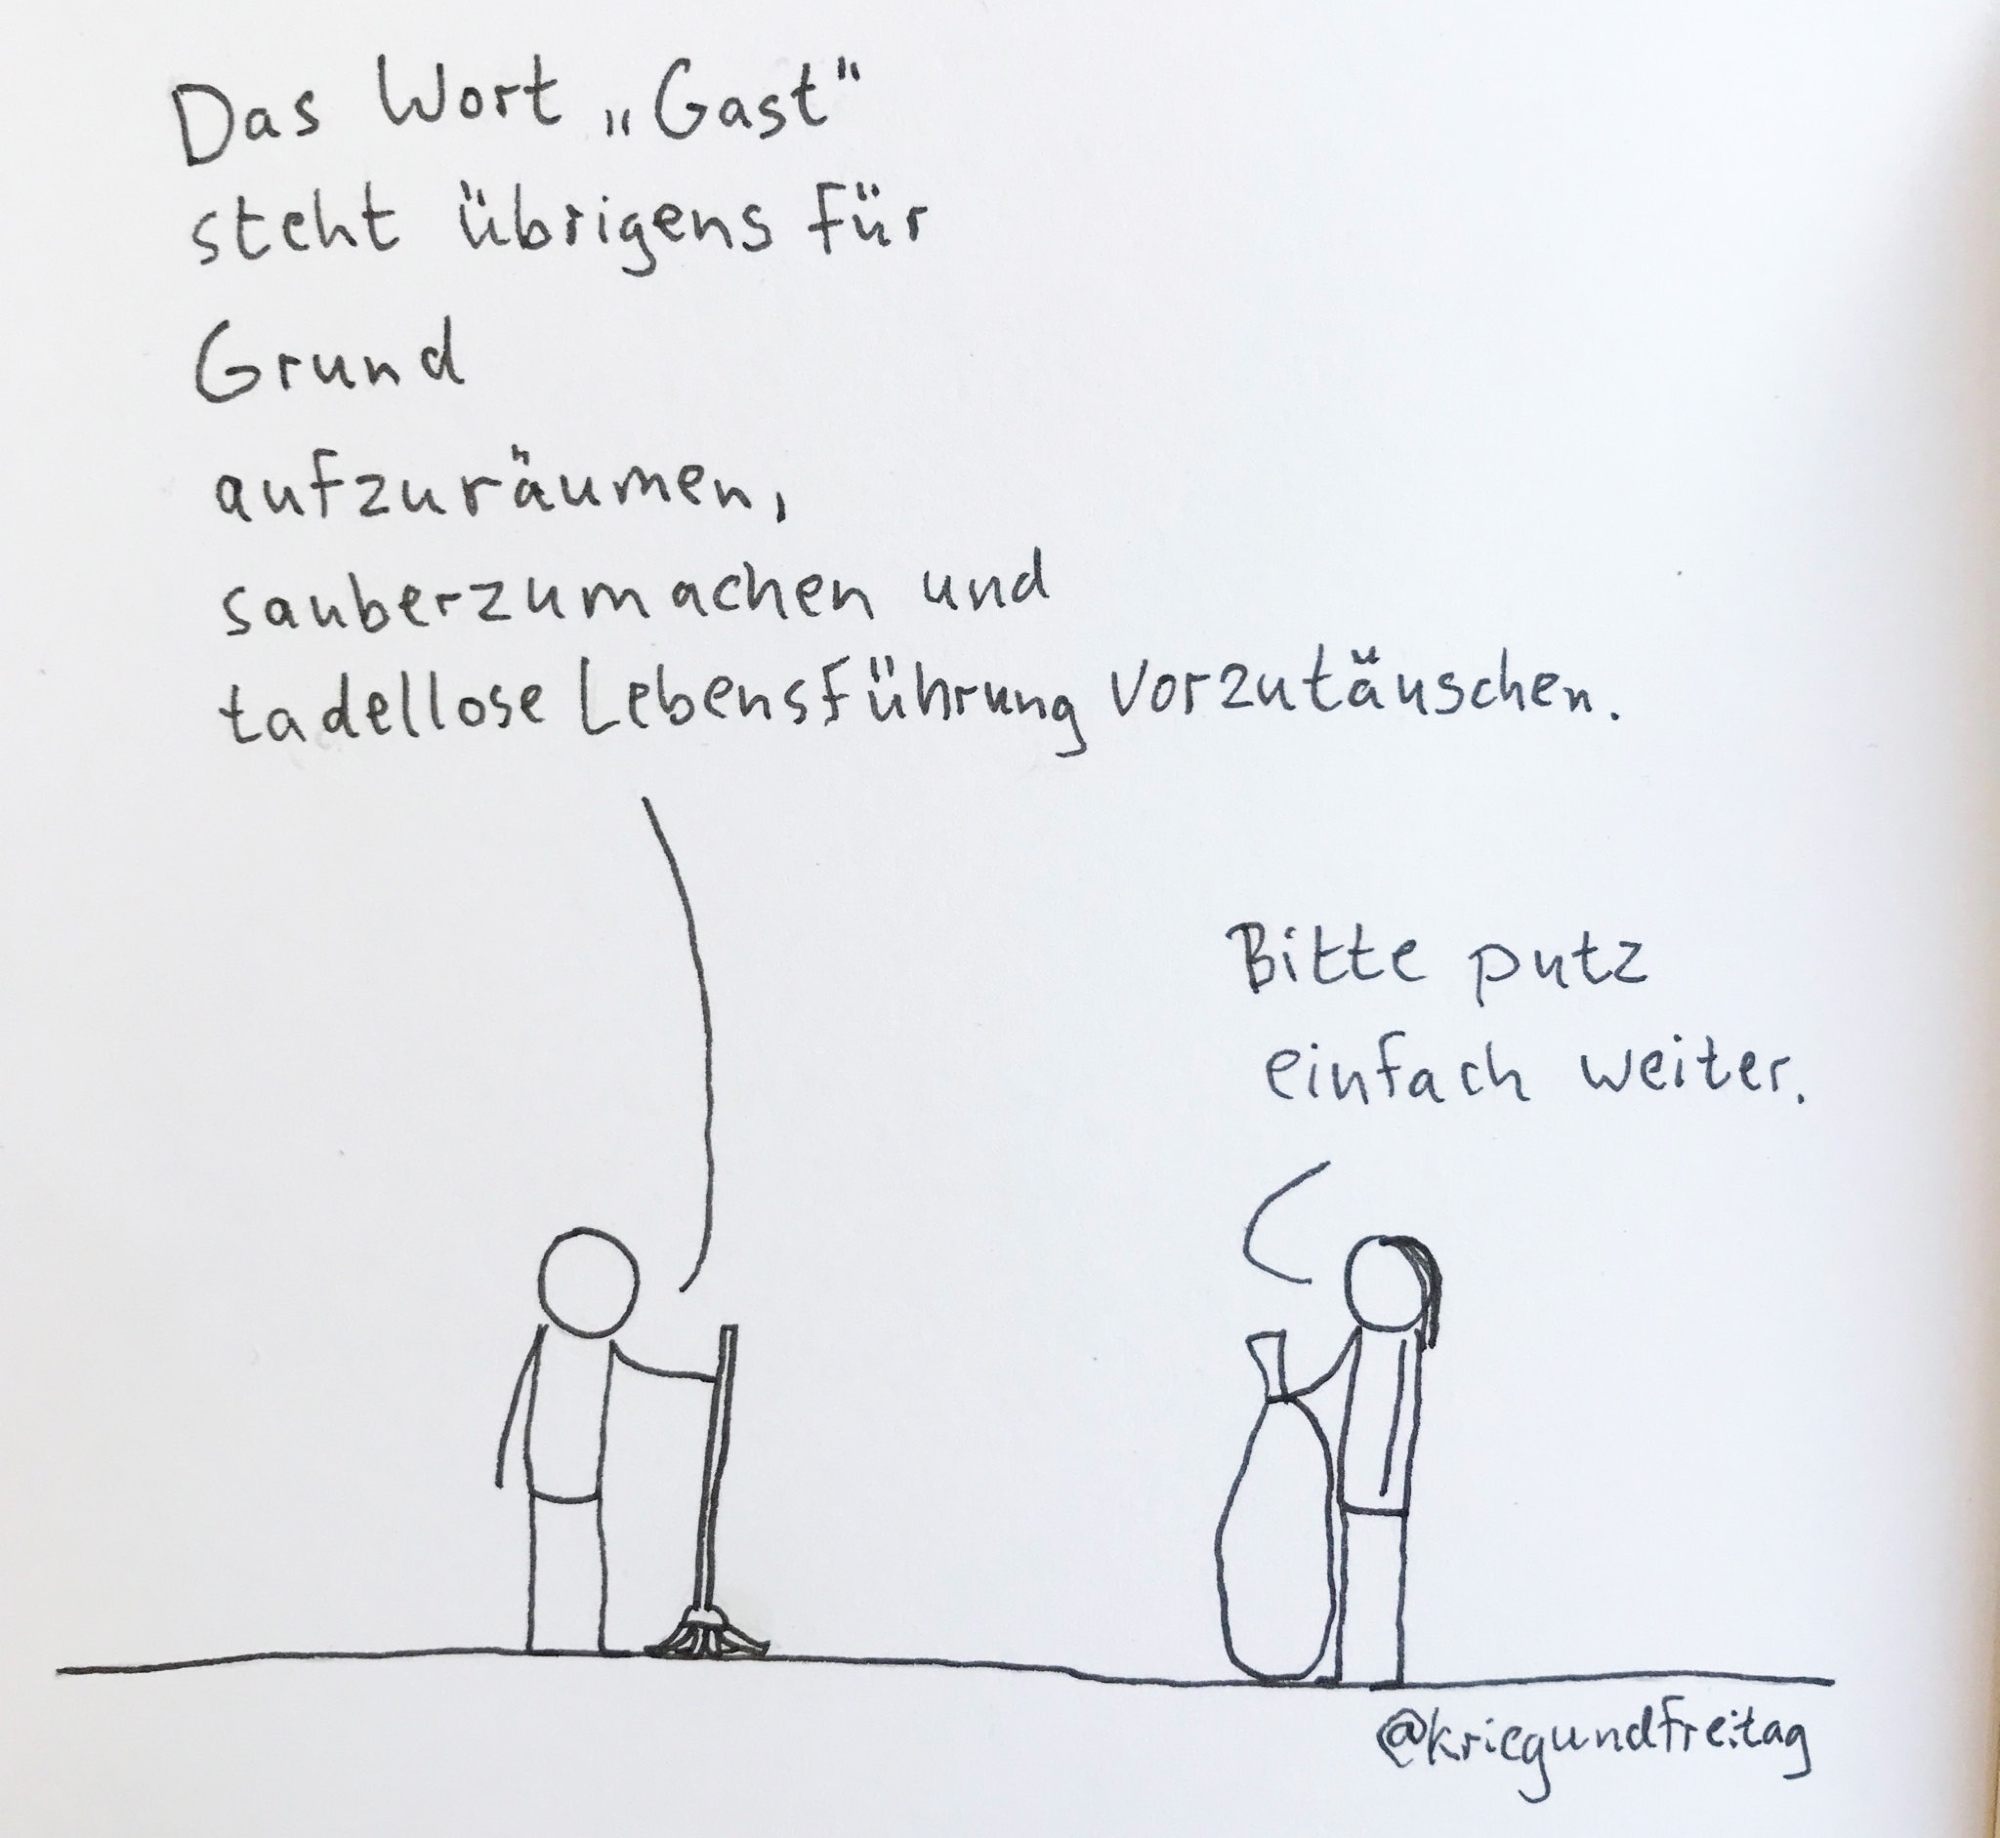 Das Wort „Gast“
steht übrigens für
Grund
aufzuräumen,
sauberzumachen und
tadellose Lebensführung vorzutäuschen.
Bitte putz
einfach weiter.
@kriegundfreitag